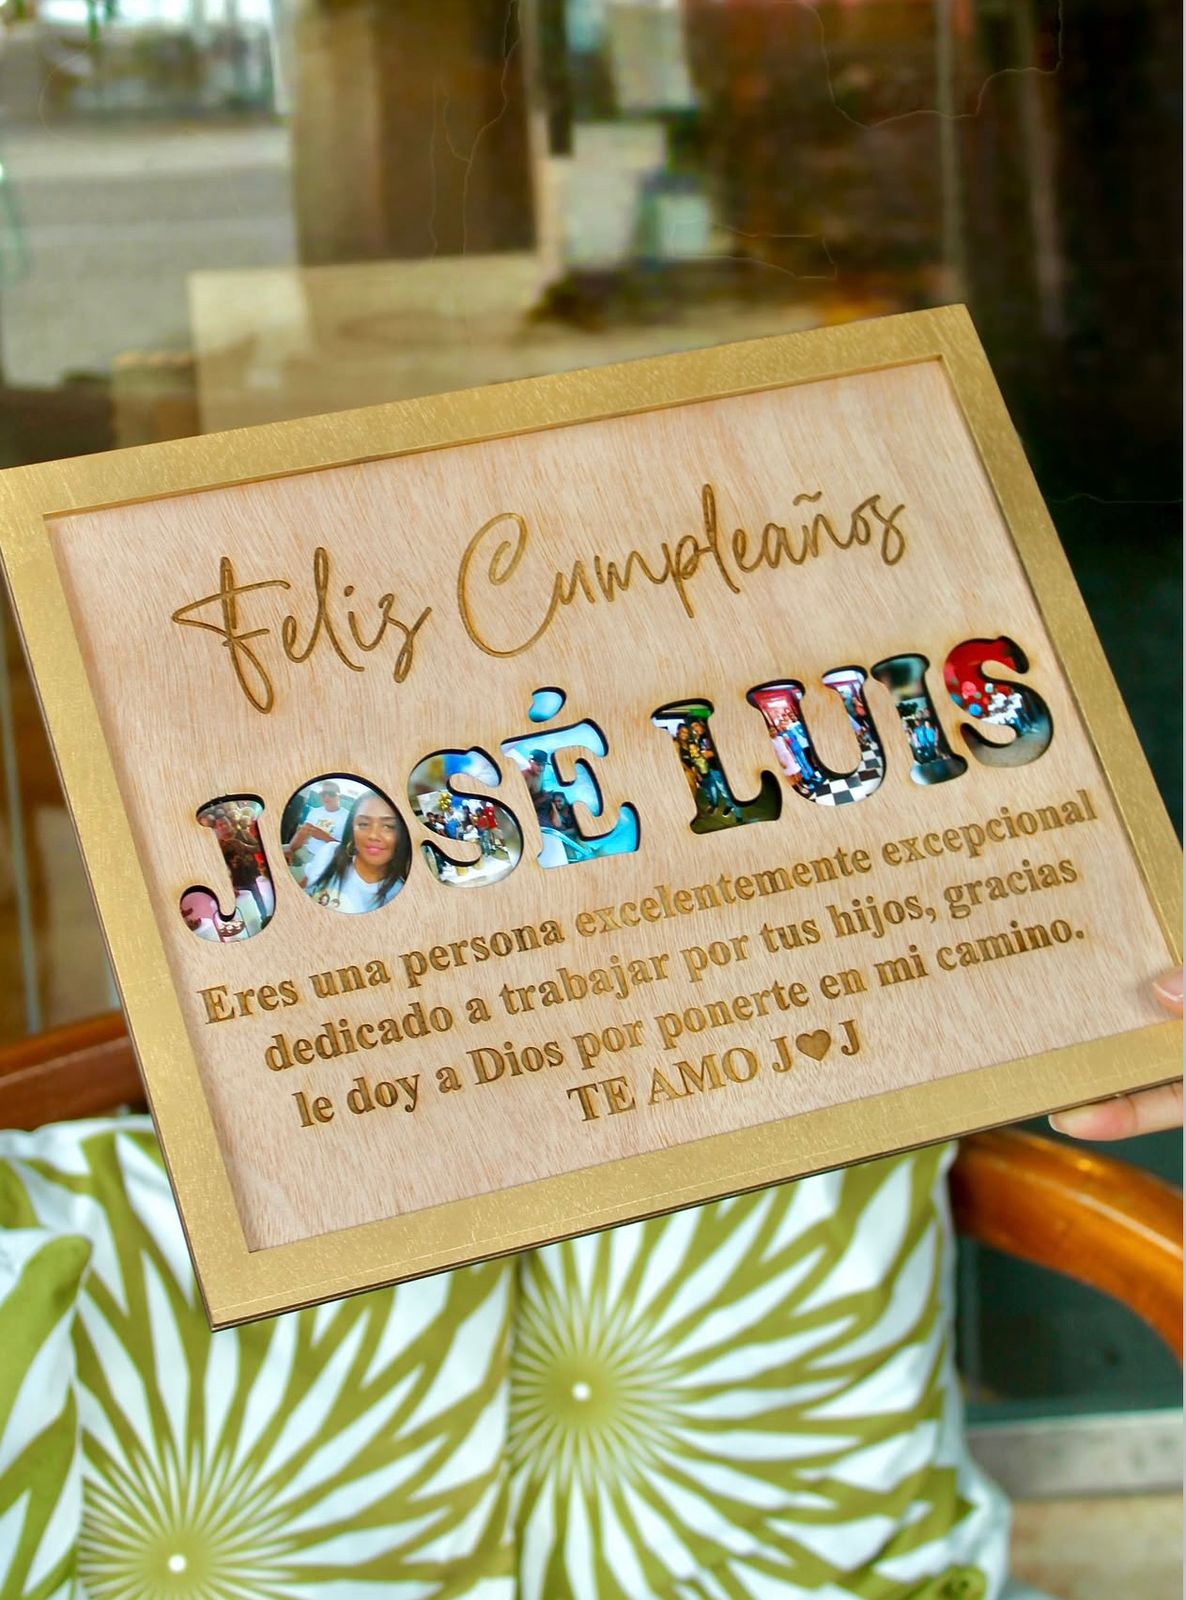 Feliz Cumpleaños
JOSÉ LUIS
Eres una persona excelentemente excepcional
dedicado a trabajar por tus hijos, gracias
le doy a Dios por ponerte en mi camino.
TE AMO J♥J